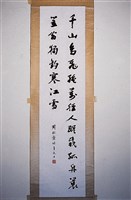 千山鳥飛絕萬徑人蹤滅孤舟蓑
笠翁獨釣寒江雪